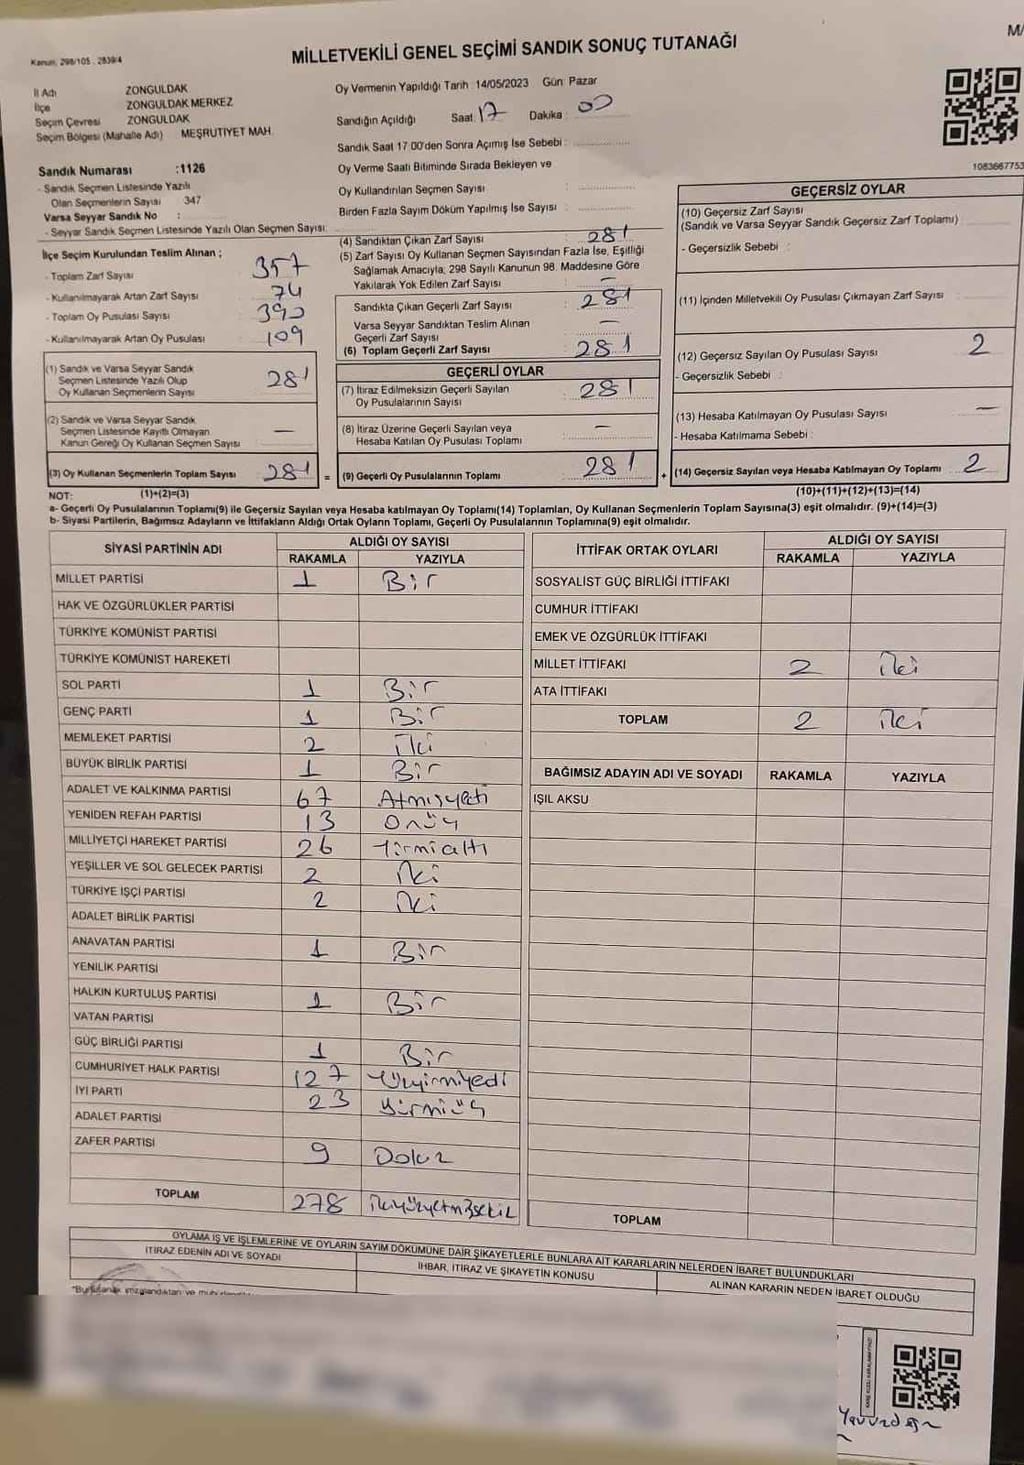 M/
Kanun, 298/105 , 2839/4
MİLLETVEKİLİ GENEL SEÇİMİ SANDIK SONUÇ TUTANAĞI
İl Adı ZONGULDAK
İlçe ZONGULDAK MERKEZ
Seçim Çevresi ZONGULDAK
Seçim Bölgesi (Mahalle Adı) MEŞRUTİYET MAH.
Oy Vermenin Yapıldığı Tarih : 14/05/2023 Gün: Pazar
Sandığın Açıldığı Saat: 17 Dakika : 00
Sandık Saat 17.00'den Sonra Açımış İse Sebebi :
Oy Verme Saati Bitiminde Sırada Bekleyen ve
Oy Kullandırılan Seçmen Sayısı :
Birden Fazla Sayım Döküm Yapılmış İse Sayısı :
1083667753
Sandık Numarası :1126
- Sandık Seçmen Listesinde Yazılı
Olan Seçmenlerin Sayısı 347
Varsa Seyyar Sandık No :
- Seyyar Sandık Seçmen Listesinde Yazılı Olan Seçmen Sayısı:
İlçe Seçim Kurulundan Teslim Alınan ;
- Toplam Zarf Sayısı 357
- Kullanılmayarak Artan Zarf Sayısı 74
- Toplam Oy Pusulası Sayısı 390
- Kullanılmayarak Artan Oy Pusulası 109
(1) Sandık ve Varsa Seyyar Sandık
Seçmen Listesinde Yazılı Olup
Oy Kullanan Seçmenlerin Sayısı 281
(2) Sandık ve Varsa Seyyar Sandık
Seçmen Listesinde Kayıtlı Olmayan
Kanun Gereği Oy Kullanan Seçmen Sayısı —
(3) Oy Kullanan Seçmenlerin Toplam Sayısı 281 =
(4) Sandıktan Çıkan Zarf Sayısı : 281
(5) Zarf Sayısı Oy Kullanan Seçmen Sayısından Fazla İse, Eşitliği
Sağlamak Amacıyla; 298 Sayılı Kanunun 98. Maddesine Göre
Yakılarak Yok Edilen Zarf Sayısı : —
Sandıkta Çıkan Geçerli Zarf Sayısı : 281
Varsa Seyyar Sandıktan Teslim Alınan
Geçerli Zarf Sayısı : —
(6) Toplam Geçerli Zarf Sayısı : 281
GEÇERLİ OYLAR
(7) İtiraz Edilmeksizin Geçerli Sayılan
Oy Pusulalarının Sayısı : 281
(8) İtiraz Üzerine Geçerli Sayılan veya
Hesaba Katılan Oy Pusulası Toplamı : —
(9) Geçerli Oy Pusulalarının Toplamı 281 +
GEÇERSİZ OYLAR
(10) Geçersiz Zarf Sayısı
(Sandık ve Varsa Seyyar Sandık Geçersiz Zarf Toplamı) :
- Geçersizlik Sebebi :
(11) İçinden Milletvekili Oy Pusulası Çıkmayan Zarf Sayısı :
(12) Geçersiz Sayılan Oy Pusulası Sayısı : 2
- Geçersizlik Sebebi :
(13) Hesaba Katılmayan Oy Pusulası Sayısı : —
- Hesaba Katılmama Sebebi :
(14) Geçersiz Sayılan veya Hesaba Katılmayan Oy Toplamı : 2
NOT: (1)+(2)=(3) (10)+(11)+(12)+(13)=(14)
a- Geçerli Oy Pusulalarının Toplamı(9) ile Geçersiz Sayılan veya Hesaba katılmayan Oy Toplamı(14) Toplamları, Oy Kullanan Seçmenlerin Toplam Sayısına(3) eşit olmalıdır. (9)+(14)=(3)
b- Siyasi Partilerin, Bağımsız Adayların ve İttifakların Aldığı Ortak Oyların Toplamı, Geçerli Oy Pusulalarının Toplamına(9) eşit olmalıdır.
SİYASİ PARTİNİN ADI ALDIĞI OY SAYISI
RAKAMLA YAZIYLA
MİLLET PARTİSİ 1 Bir
HAK VE ÖZGÜRLÜKLER PARTİSİ
TÜRKİYE KOMÜNİST PARTİSİ
TÜRKİYE KOMÜNİST HAREKETİ
SOL PARTİ 1 Bir
GENÇ PARTİ 1 Bir
MEMLEKET PARTİSİ 2 İki
BÜYÜK BİRLİK PARTİSİ 1 Bir
ADALET VE KALKINMA PARTİSİ 67 Atmışyedi
YENİDEN REFAH PARTİSİ 13 Onüç
MİLLİYETÇİ HAREKET PARTİSİ 26 Yirmialtı
YEŞİLLER VE SOL GELECEK PARTİSİ 2 İki
TÜRKİYE İŞÇİ PARTİSİ 2 İki
ADALET BİRLİK PARTİSİ
ANAVATAN PARTİSİ 1 Bir
YENİLİK PARTİSİ
HALKIN KURTULUŞ PARTİSİ 1 Bir
VATAN PARTİSİ
GÜÇ BİRLİĞİ PARTİSİ 1 Bir
CUMHURİYET HALK PARTİSİ 127 Yüzyirmiyedi
İYİ PARTİ 23 Yirmiüç
ADALET PARTİSİ
ZAFER PARTİSİ 9 Dokuz
TOPLAM 278
İTTİFAK ORTAK OYLARI ALDIĞI OY SAYISI
RAKAMLA YAZIYLA
SOSYALİST GÜÇ BİRLİĞİ İTTİFAKI
CUMHUR İTTİFAKI
EMEK VE ÖZGÜRLÜK İTTİFAKI
MİLLET İTTİFAKI 2 İki
ATA İTTİFAKI
TOPLAM 2 İki
BAĞIMSIZ ADAYIN ADI VE SOYADI RAKAMLA YAZIYLA
IŞIL AKSU
TOPLAM
OYLAMA İŞ VE İŞLEMLERİNE VE OYLARIN SAYIM DÖKÜMÜNE DAİR ŞİKAYETLERLE BUNLARA AİT KARARLARIN NELERDEN İBARET BULUNDUKLARI
İTİRAZ EDENİN ADI VE SOYADI İHBAR, İTİRAZ VE ŞİKAYETİN KONUSU ALINAN KARARIN NEDEN İBARET OLDUĞU